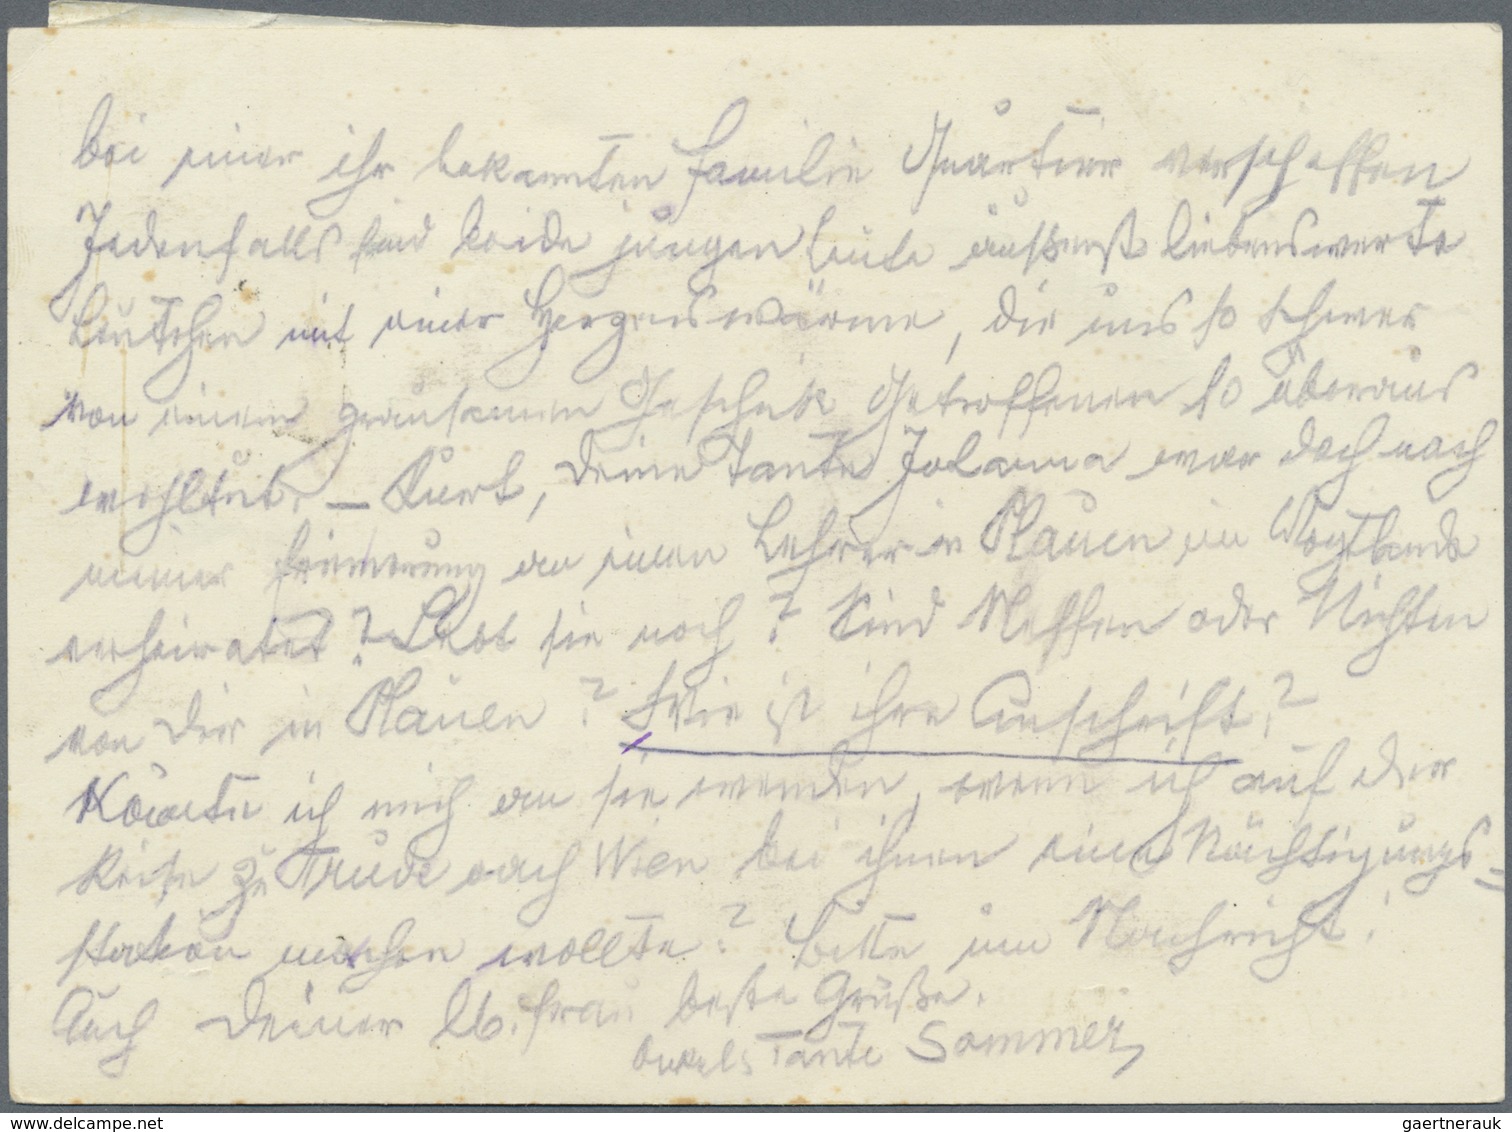 bei einer ihr bekannten Familie Quartier verschaffen
Jedenfalls sind beide jungen Leute äußerst liebenswerte
Leutchen mit einer Herzenswärme, die uns so schwer
von einem grausamen Geschick Getroffenen so überaus
wohltut. – Kurt, Deine Tante Johanna war doch nach
meiner Erinnerung an einen Lehrer in Plauen im Vogtlande
verheiratet? Lebt sie noch? Sind Neffen oder Nichten
von Dir in Plauen? Wie ist ihre Anschrift?
Könnte ich mich an sie wenden, wenn ich auf der
Reise zu Trude nach Wien bei ihnen eine Nächtigungs=
station machen wollte? Bitte um Nachricht!
Auch Deiner lb. Frau beste Grüße.
Tante Sommer
www.delcampe.net
gaertnerauk